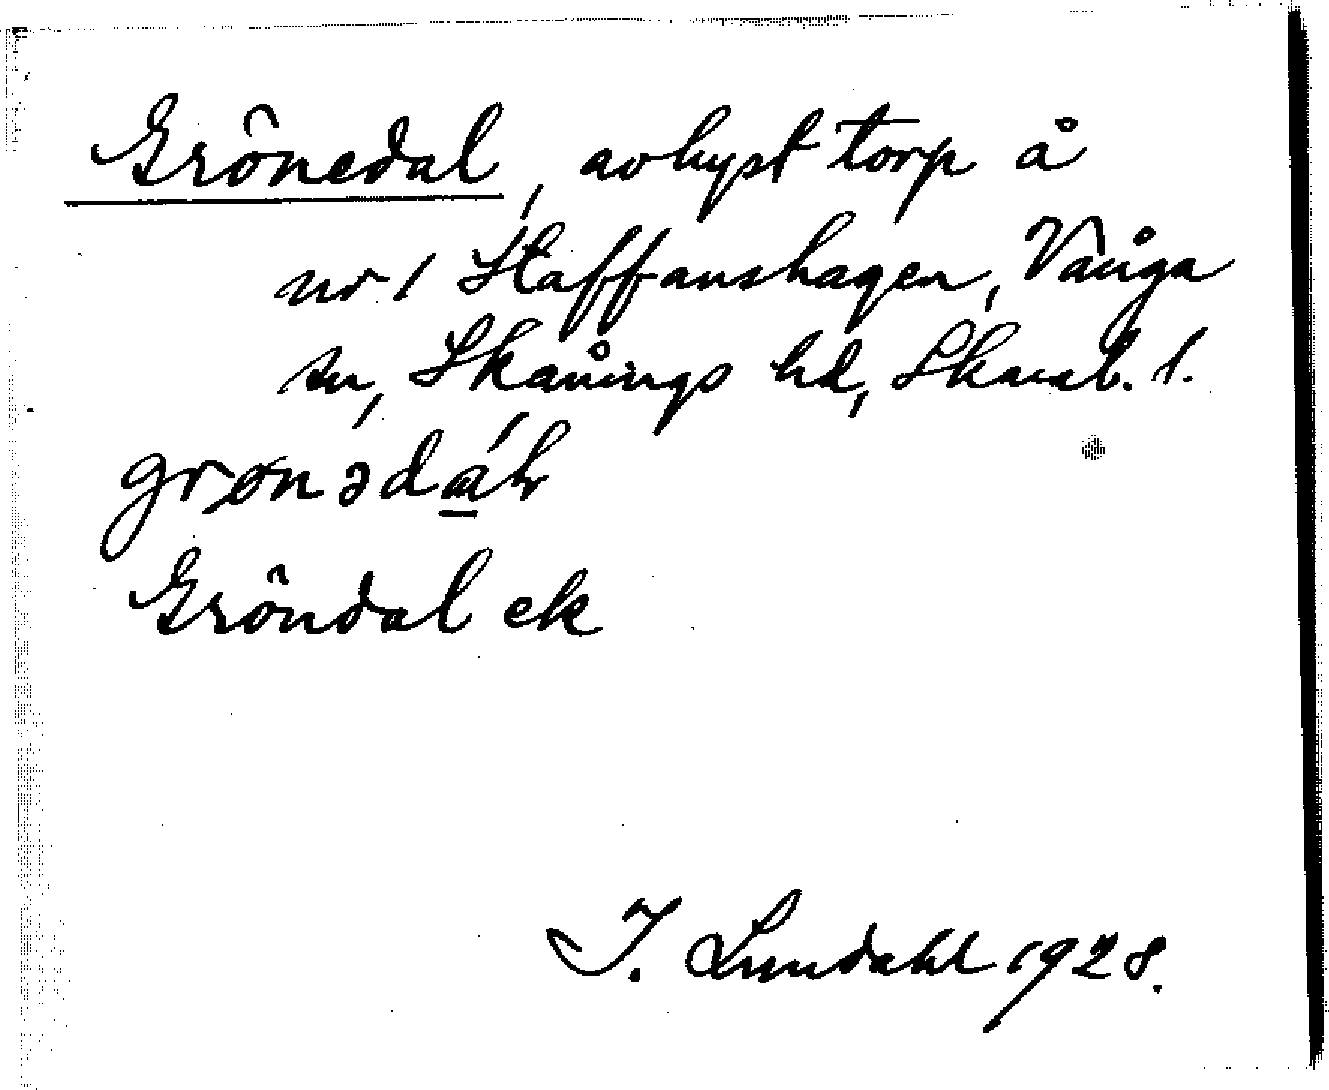 Grönedal, avhyst torp å
nr 1 Staffanshagen, Vånga
sn, Skånings hd, Skarab. l.
grønəda
Gröndal ek
I. Lundahl 1928.